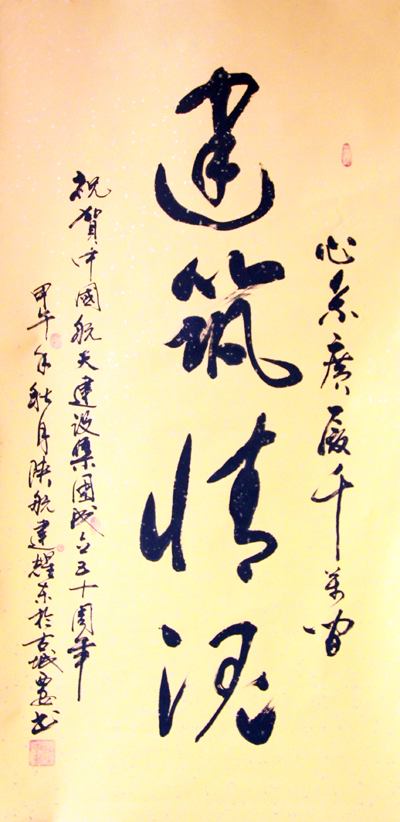 心系廣厦千萬间
建筑情深
祝賀中國航天建设集團成立五十周年
甲午年秋月陕航建耀东於古城书